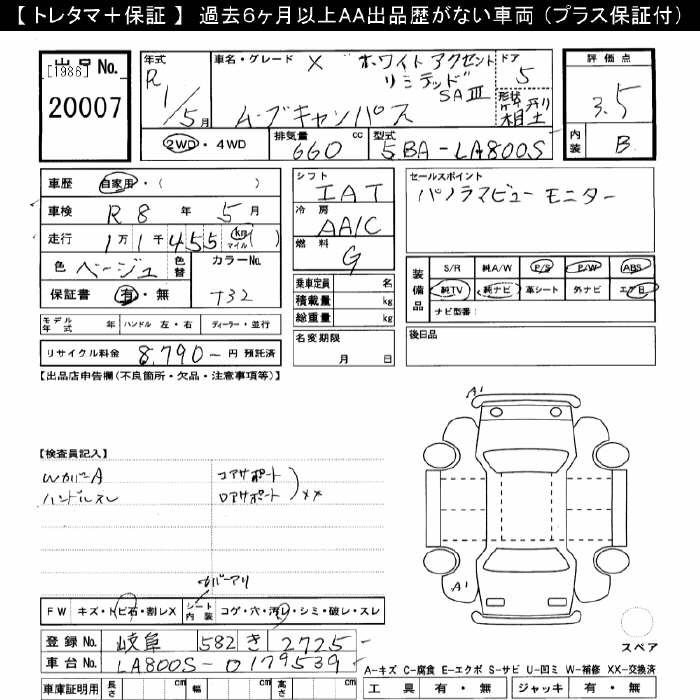 【 トレタマ＋保証 】 過去6ヶ月以上AA出品歴がない車両（プラス保証付）
出品 No.
[1986]
20007
年式 R 1/5月
車名・グレード X ホワイトアクセント
リミテッド
SAⅢ
ムーブキャンバス
ドア 5
形状
2WD・4WD
排気量 660 cc
型式 5BA-LA800S
評価点 3.5
内装 B
車歴 自家用・（ ）
車検 R 8 年 5 月
走行 1万1千455 km マイル ( )
色 ベージュ 色替 カラーNo. T32
保証書 有・無
シフト IAT
冷房 AA/C
燃料 G
乗車定員 名
積載量 kg
総重量 kg
名変期限
月 日
セールスポイント
パノラマビューモニター
装備品 S/R 純A/W P/S P/W ABS
純TV 純ナビ 革シート 外ナビ エアB
ナビ型番：
後日品
モデル年式 年 ハンドル 左・右 ディーラー・並行
リサイクル料金 8,790- 円 預託済
【出品店申告欄(不良箇所・欠品・注意事項等)】
【検査員記入】
WカバーA
ハンドルスレ
コアサポート
ロアサポート
XX
カバーアリ
FW キズ・トビ石・割レX シート内装 コゲ・穴・汚レ・シミ・破レ・スレ
登録 No. 岐阜 582 き 2725
車台 No. LA800S-0179539
車庫証明用 長さ cm 幅 cm 高さ cm
A1
A1
スペア
A-キズ C-腐食 E-エクボ S-サビ U-凹ミ W-補修 XX-交換済
工具 有・無 ジャッキ 有・無